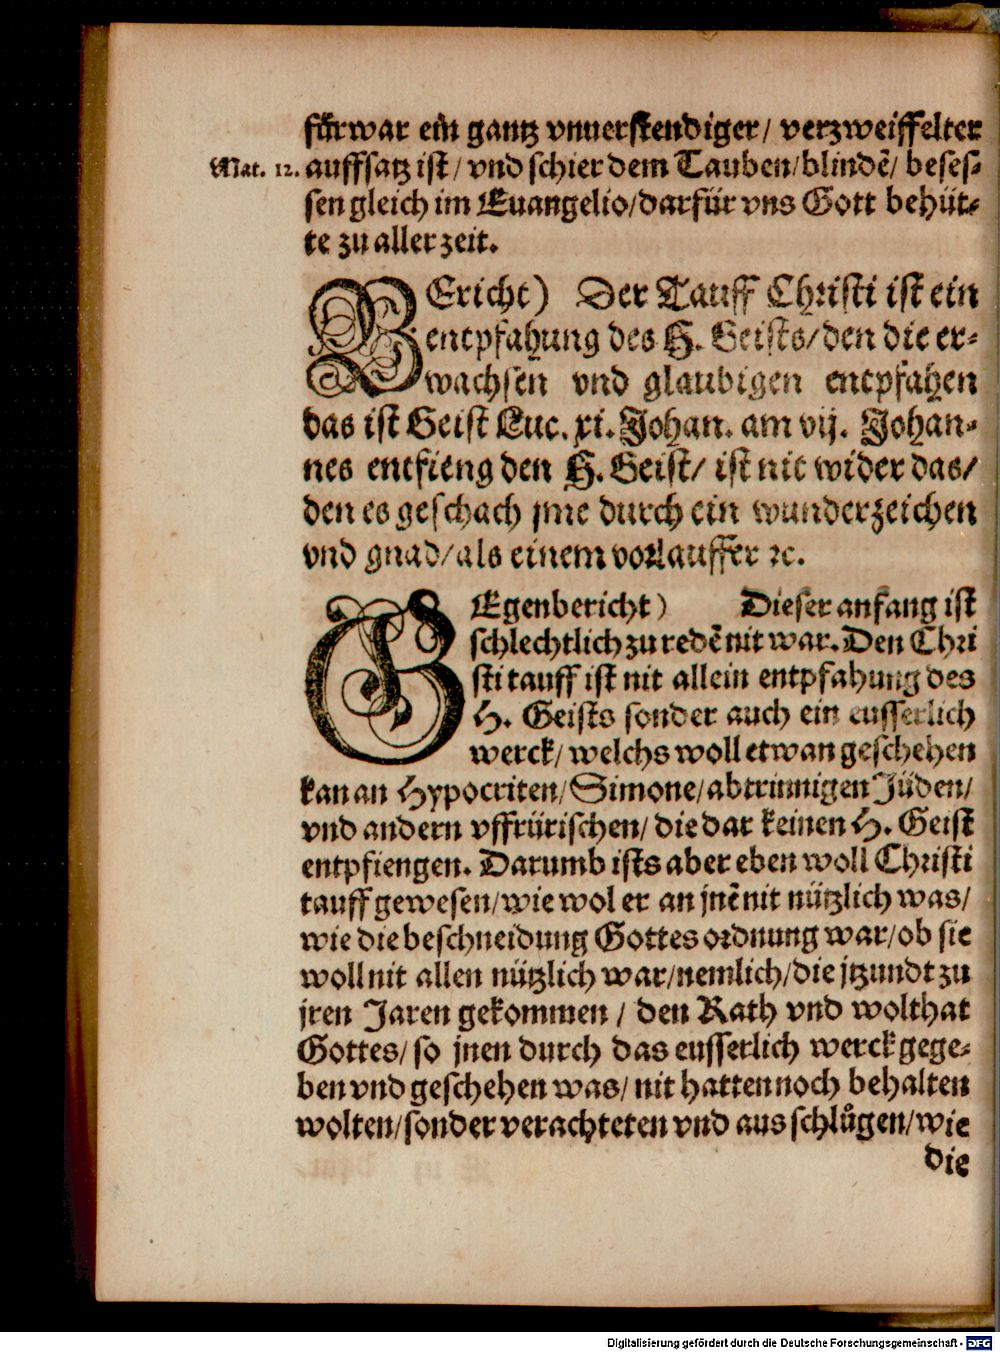 fürwar ein gantz vnuerstendiger/ verzweiffelter
Mat. 12. auffsatz ist/ vnd schier dem Tauben/blindē/ beses-
sen gleich im Euangelio/darfür vns Gott behüt-
te zu aller zeit.
BEricht) Der Tauff Christi ist ein
entpfahung des H. Geists/den die er-
wachsen vnd glaubigen entpfahen
das ist Geist Luc. xi. Johan. am vij. Johan-
nes entfieng den H. Geist/ ist nit wider das/
den es geschach jme durch ein wunderzeichen
vnd gnad/als einem vorlauffer ꝛc.
GEgenbericht) Dieser anfang ist
schlechtlich zu redē nit war. Den Chri
sti tauff ist nit allein entpfahung des
H. Geists sonder auch ein eusserlich
werck/ welchs woll etwan geschehen
kan an Hypocriten/Simone/abtrinnigen Jüden/
vnd andern vffrürischen/ die dar keinen H. Geist
entpfiengen. Darumb ists aber eben woll Christi
tauff gewesen/wie wol er an jnē nit nützlich was/
wie die beschneidung Gottes ordnung war/ob sie
woll nit allen nützlich war/nemlich/die jtzundt zu
jren Jaren gekommen / den Rath vnd wolthat
Gottes/ so jnen durch das eusserlich werck gege-
ben vnd geschehen was/ nit hatten noch behalten
wolten/sonder verachteten vnd aus schlůgen/wie
die
Digitalisierung gefördert durch die Deutsche Forschungsgemeinschaft - DFG